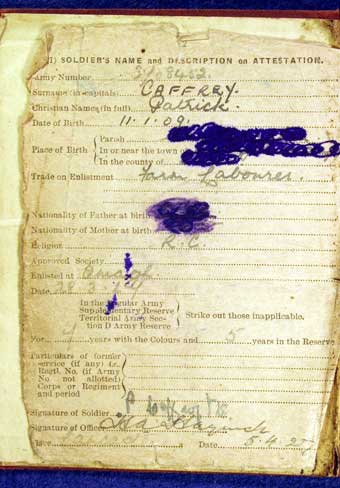 (1) SOLDIER'S NAME and DESCRIPTION on ATTESTATION.
Army Number
Surname (in capitals) CAFFREY.
Christian Names (in full) Patrick.
Date of Birth 11.1.09.
Place of Birth { Parish
In or near the town
In the county of
Trade on Enlistment Farm Labourer.
Nationality of Father at birth
Nationality of Mother at birth
Religion R.C.
Approved Society
Enlisted at Omagh
Date 28.3.
In the Regular Army
Supplementary Reserve
Territorial Army Section D Army Reserve } Strike out those inapplicable.
For years with the Colours and 5 years in the Reserve
Particulars of former
service (if any) i.e.
Regtl. No. (if Army
No. not allotted)
Corps or Regiment
and period
Signature of Soldier
Signature of Officer
Date 5.4.27